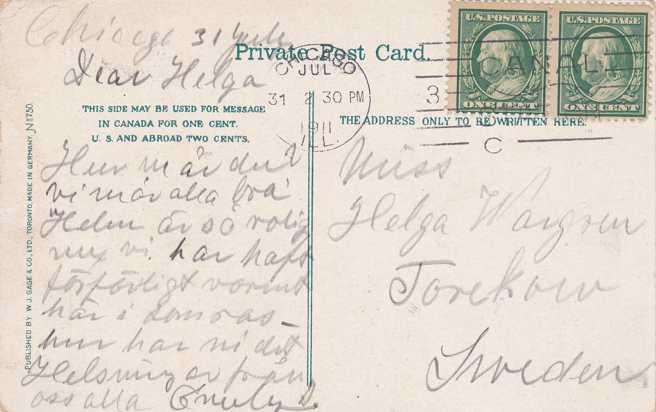 Chicago 31 Juli
Private Post Card.
Dear Helga
U.S. POSTAGE
ONE CENT
U.S. POSTAGE
ONE CENT
CHICAGO
JUL
31 2 30 PM
1911
ILL.
CANAL
3
C
THIS SIDE MAY BE USED FOR MESSAGE
IN CANADA FOR ONE CENT.
U. S. AND ABROAD TWO CENTS.
THE ADDRESS ONLY TO BE WRITTEN HERE.
Hur mår du?
vi mår alla bra
Helen är så rolig
nu vi har haft
förfärligt varmt
här i somras
hur har ni det
Helsningar från
oss alla Emily
Miss
Helga Wargren
Torekow
Sweden
PUBLISHED BY W. J. GAGE & CO., LTD., TORONTO, MADE IN GERMANY. N1750